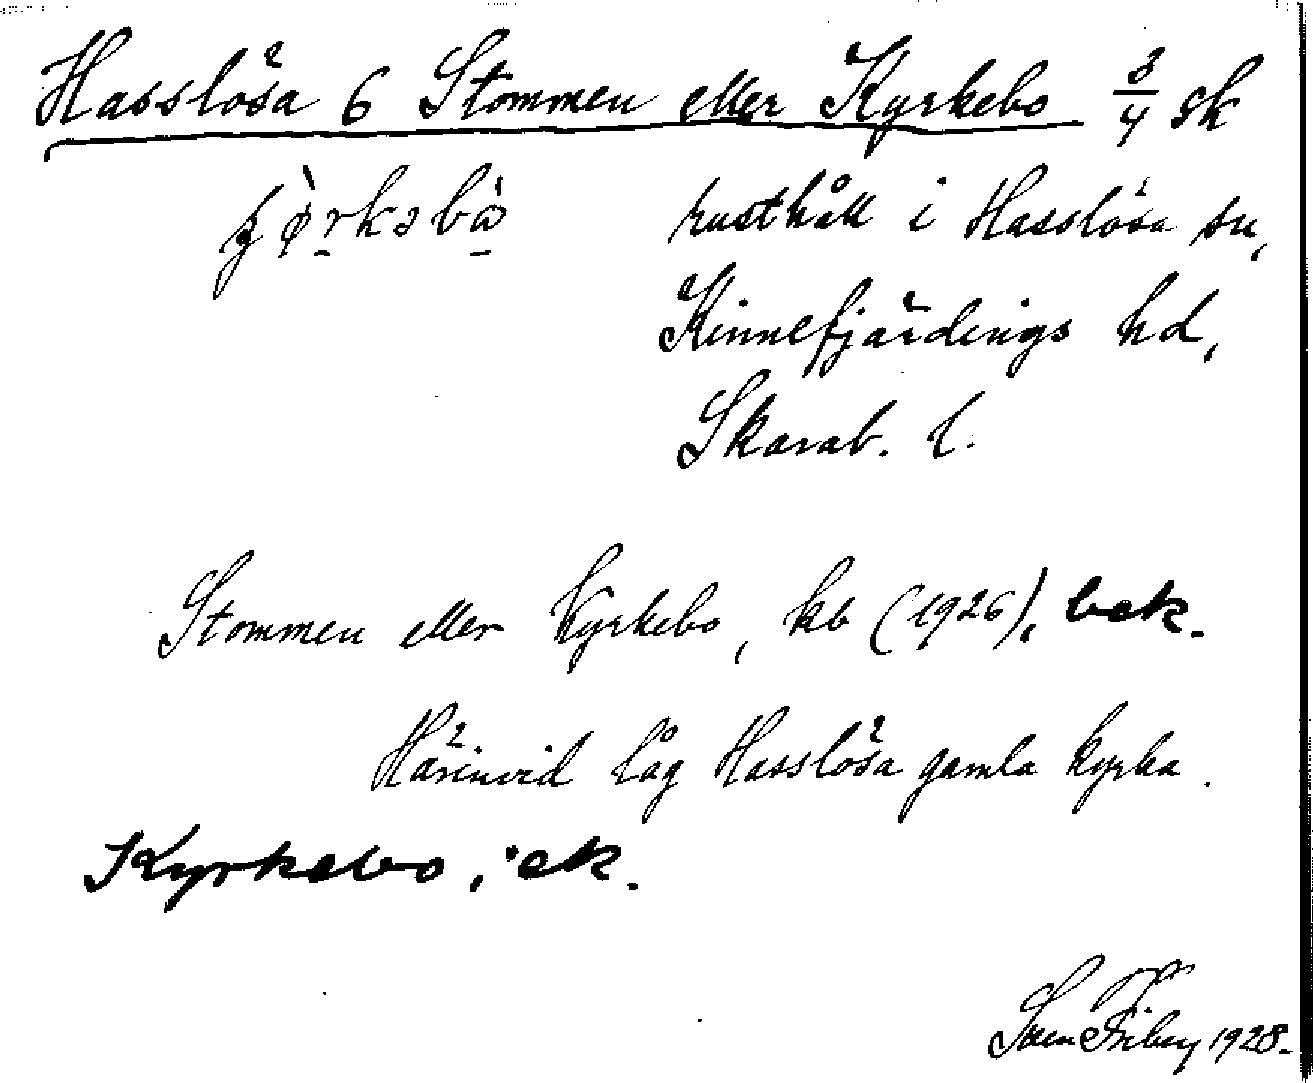 Hasslösa 6 Stommen eller Kyrkebo 3/4 sk
rusthåll i Hasslösa sn,
Kinnefjärdings hd,
Skarab. l.
Stommen eller Kyrkebo, kb (1926), bek.
Härinvid låg Hasslösa gamla kyrka.
Kyrkebo, ek.
Sven Friberg 1928.